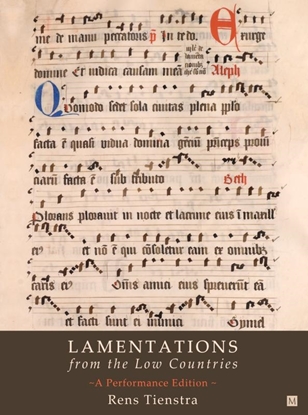 me de manu peccatoris p̄ In te do. Exurge
domine Et iudica causam meā Aleph
Quomodo sedet sola ciuitas plena pplo
facta ē quasi vidua domina gētiū p̄nceps prouī
ciarū facta ē sub tributo Beth
Plorans plorauit in nocte et lacrime eius ī maxill
et nō ē qui cōsoletur eam ex omnibꝫ
caris eiꝰ Om̄s amici eius spreuerūt eā
et facti sunt ei inimici Gymel
LAMENTATIONS
from the Low Countries
~A Performance Edition ~
Rens Tienstra
M